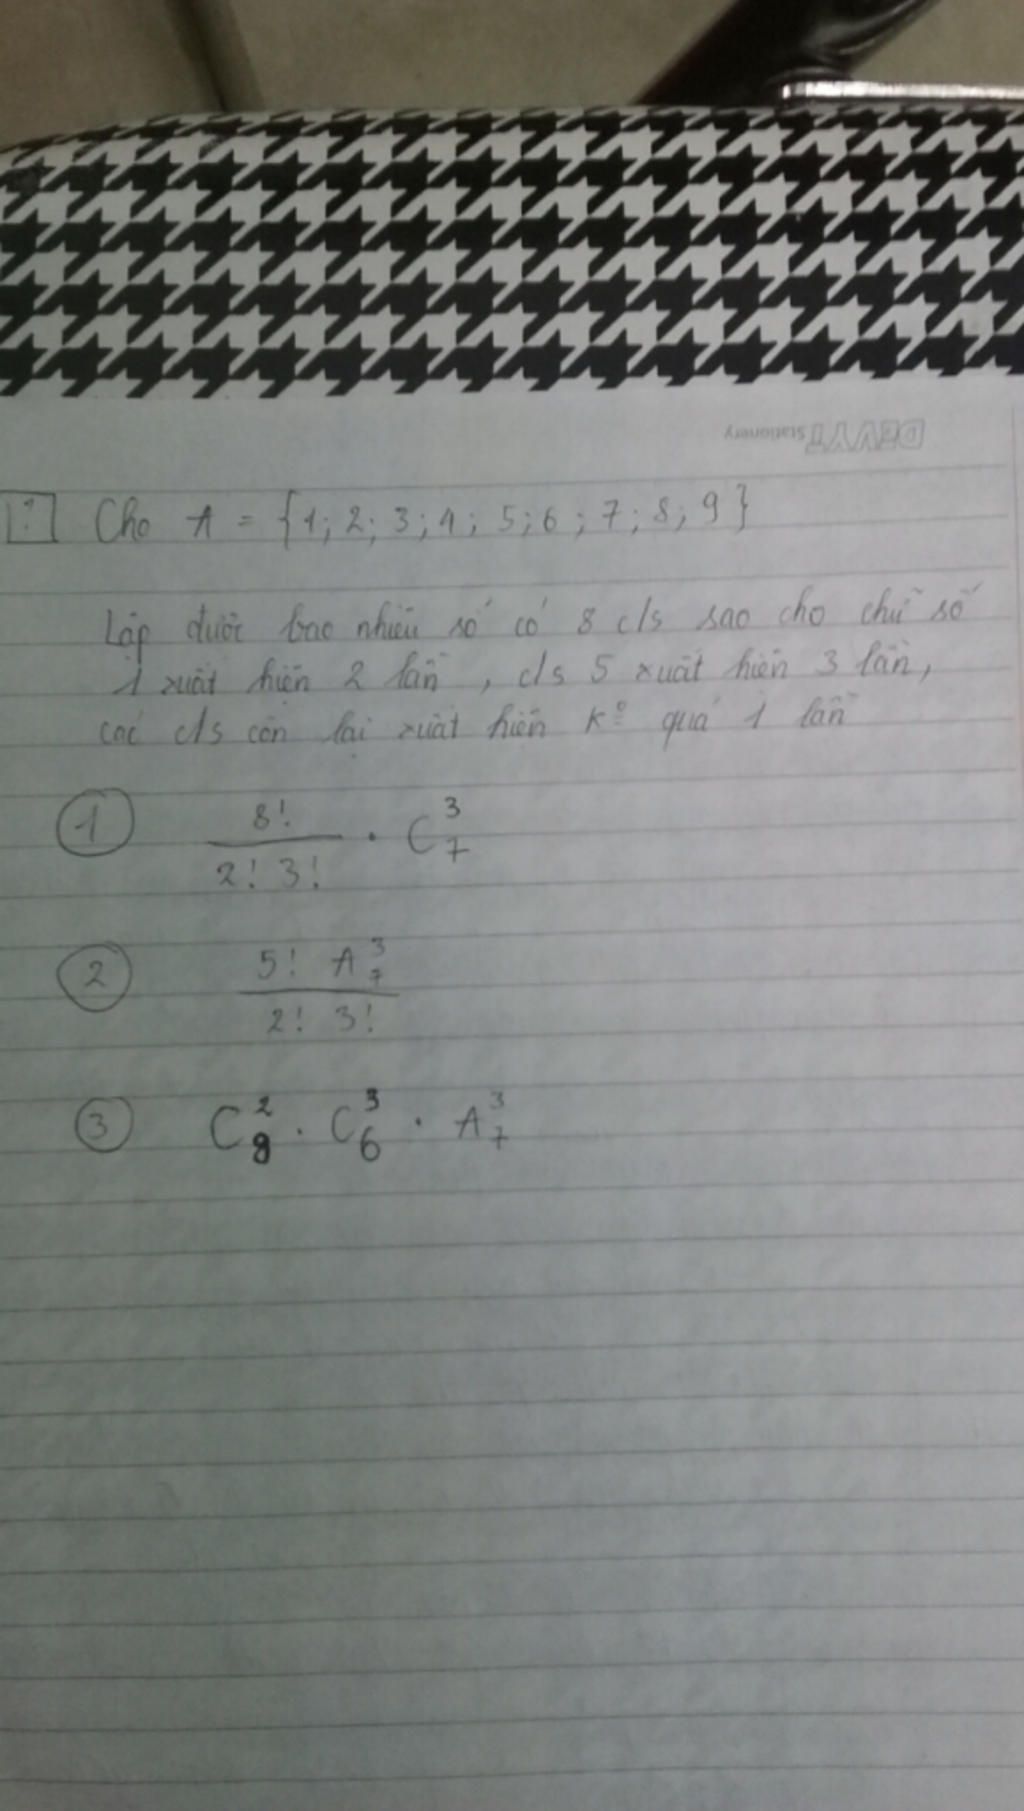 DEVYT Stationery
? Cho A = {1; 2; 3; 4; 5; 6; 7; 8; 9}
Lập được bao nhiêu số có 8 c/s sao cho chữ số
1 xuất hiện 2 lần, c/s 5 xuất hiện 3 lần,
các c/s còn lại xuất hiện kº quá 1 lần
① 8! / 2! 3! . C₇³
② 5! A₇³ / 2! 3!
③ C₈² . C₆³ . A₇³